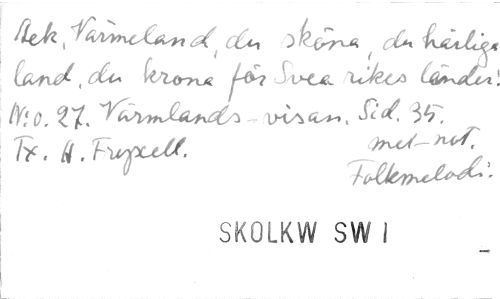 Ack, Värmeland, du sköna, du härliga
land, du krona för Svea rikes länder!
N:o. 27. Värmlands-visan. Sid. 35.
Tx. A. Fryxell. met-not.
Folkmelodi.
SKOLKW SW I